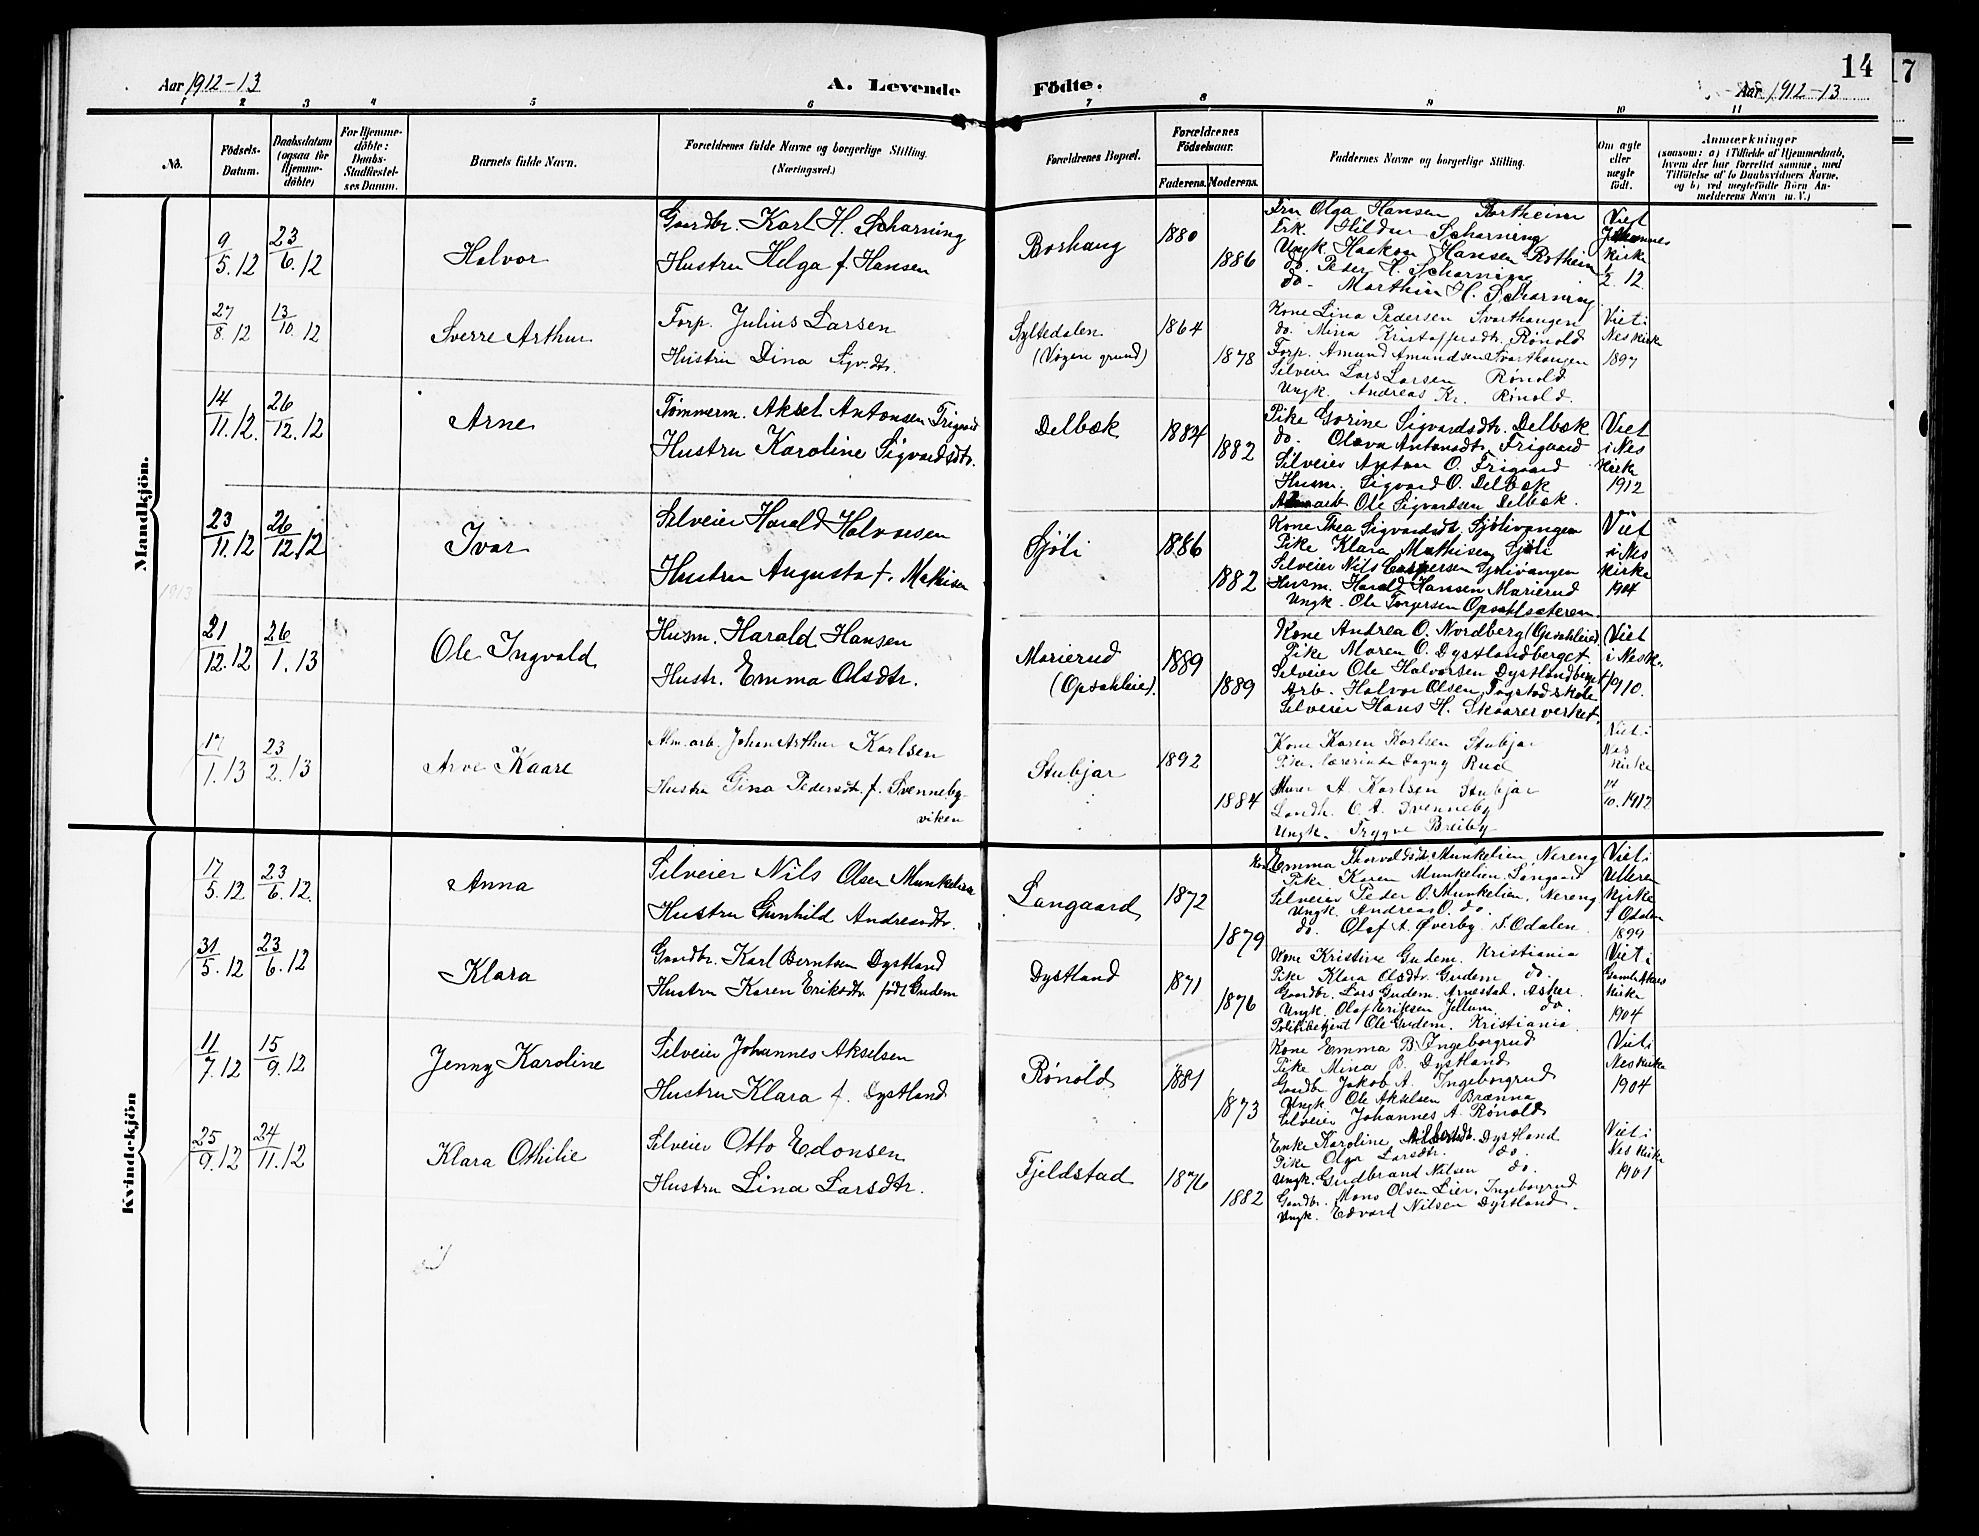 Aar 1912-13
A. Levende
Födte.
14
17
Aar 1912-13
1 2 3 4 5 6 7 8 9 10 11
No.
Födsels-
Datum.
Daabsdatum
(ogsaa for
Hjemme-
döbte)
For Hjemme-
döbte:
Daabs-
Stadfæstel-
ses Datum.
Barnets fulde Navn.
Forældrenes fulde Navne og borgerlige Stilling.
(Næringsvei.)
Forældrenes Bopæl.
Forældrenes
Födselsaar.
Faderens.
Moderens.
Faddernes Navne og borgerlige Stilling.
Om ægte
eller
uægte
födt.
Anmærkninger
(saasom: a) i Tilfælde af Hjemmedaab,
hvem der har forrettet samme, med
Tilföielse af to Daabsvidners Navne,
og b) ved uægtefödte Börn An-
melderens Navn m. V.)
Mandkjön.
9/5.12
23/6.12
Halvor
Gaardbr. Karl H. Scharning
Hustru Helga f. Hansen
Borhaug
1880
1886
Fru Olga Hansen Rortheim
Frk. Hildur Scharning
Ungk. Haakon Hansen Rotheim
do. Peder H. Scharning
do. Marthin H. Scharning
Viet
Johannes
Kirke
2. 12
27/8.12
13/10.12
Sverre Arthur
Forp. Julius Larsen
Hustru Dina Sgv.dtr.
Syltedalen
(Vögern grund)
1864
1878
Kone Lina Pedersen Svarthaugen
do. Mina Kristoffersdtr. Rönold
Forp. Amund Amundsen Svarthaugen
Selveier Lars Larsen Rönold
Ungk. Andreas Kr. Rönold.
Viet i
Nes Kirke
1897
14/11.12.
26/12.12
Arne
Tömmerm. Aksel Antonsen Frigaard
Hustru Karoline Sigvardsdtr.
Delbæk
1884
1882
Pike Gorine Sigvardsdtr. Delbæk
do. Oleva Antonsdtr. Frigaard
Selveier Anton O. Frigaard
Husm. Sigvard O. Delbæk
arb Ole Sigvardsen Delbæk.
Viet
i Nes
Kirke
1912
23/11.12
26/12.12
Ivar
Selveier Harald Halvorsen
Hustru Augusta f. Mathisen
Sjöli
1886
1882
Kone Thea Sigvardsdt. Sjölivangen
Pike Klara Mathisen Sjöli
Selveier Nils Caspersen Sjölivangen
Husm. Harald Hansen Marierud
Ungk. Ole Torgersen Opsahlsæteren.
Viet
i Nes
Kirke
1904
1913
21/12.12
26/1.13
Ole Ingvald
Husm. Harald Hansen
Hustr. Emma Olsdtr.
Marierud
(Opsahleie).
1889
1889
Kone Andrea O. Nordberg (Opsahleie)
Pike Maren O. Dystlandberget.
Selveier Ole Halvorsen Dystlandberget
Arb. Halvor Olsen, Fagstad skole
Selveier Hans H. Skaarerverket.
Viet
i Nes K.
1910.
17/1.13
23/2.13
Arve Kaare
Alm. arb. Johan Arthur Karlsen
Hustru Gina Pedersdtr. f. Svenneby-
viken
Stubjar
1892
1884
Kone Karen Karlsen Stubjar
Pike, lærerinde Dagny Rud
Murer A. Karlsen Stubjar
Landh. O. A. Svenneby
Ungk. Trygve Breiby
Viet i
Kirke
10. 1912
Kvindekjön
17/5.12
23/6.12.
Anna
Selveier Nils Olsen Munkelien
Hustru Gunhild Andreasdtr.
Langaard
1872
1879
Kone Emma Thorvaldsdt. Munkelien, Nereng
Pike Karen Munkelien, Langaard
Selveier Peder O. Munkelien, Nereng
Ungk. Andreas O. do.
do. Olaf A. Øverby, S. Odalen.
Viet i
Ulleren
Kirke
S. Odalen
1899
31/5.12
23/6.12
Klara
Gaardbr. Karl Berntsen Dystland
Hustru Karen Eriksdtr. født Gudem
Dystland
1871
1876
Kone Kristine Gudem, Kristiania
Pike Klara Olsdtr. Gudem do.
Gaardbr. Lars Gudem, Arnestad, Asker.
Ungk. Olaf Eriksen Jellum, do.
Politibetjent Ole Gudem. Kristiania.
Viet i
Gamle Akers
Kirke
1904
11/7.12
15/9.12
Jenny Karoline
Selveier Johannes Akselsen
Hustru Klara f. Dystland
Rönold
1881
1873
Kone Emma B. Ingeborgrud
Pike Mina B. Dystland
Gaardbr. Jakob A. Ingeborgrud
Ungk. Ole Akselsen Brænna
Selveier Johannes A. Rönold
Viet i
Nes Kirke
1904
25/9.12
24/11.12
Klara Othilie
Selveier Otto Edonsen
Hustru Lina Larsdtr.
Fjeldstad
1876
1882
Enke Karoline Dystland
Pike Olga Larsdtr. do.
Ungk. Gudbrand Nilsen do.
Gaardbr. Mons Olsen Lier, Ingeborgrud
Ungk. Edvard Nilsen Dystland.
Viet i
Nes Kirke
1901